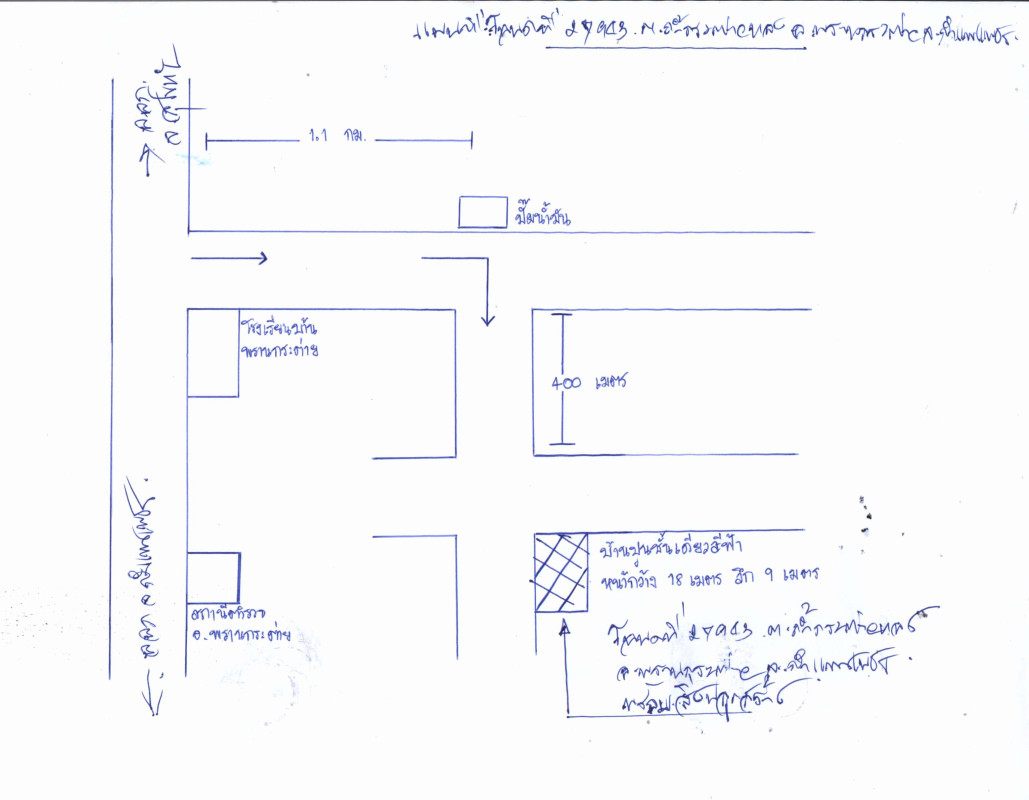 แผนที่โฉนดที่ 27943 ต.ถ้ำกระต่ายทอง อ.พรานกระต่าย จ.กำแพงเพชร
อ.
1.1 กม.
ปั๊มน้ำมัน
โรงเรียนบ้าน
พรานกระต่าย
400 เมตร
บ้านปูนชั้นเดียวสีฟ้า
หน้ากว้าง 18 เมตร ลึก 9 เมตร
สถานีตำรวจ
อ.พรานกระต่าย
โฉนดที่ 27943 ต.ถ้ำกระต่ายทอง
อ.พรานกระต่าย จ.กำแพงเพชร
พร้อมสิ่งปลูกสร้าง